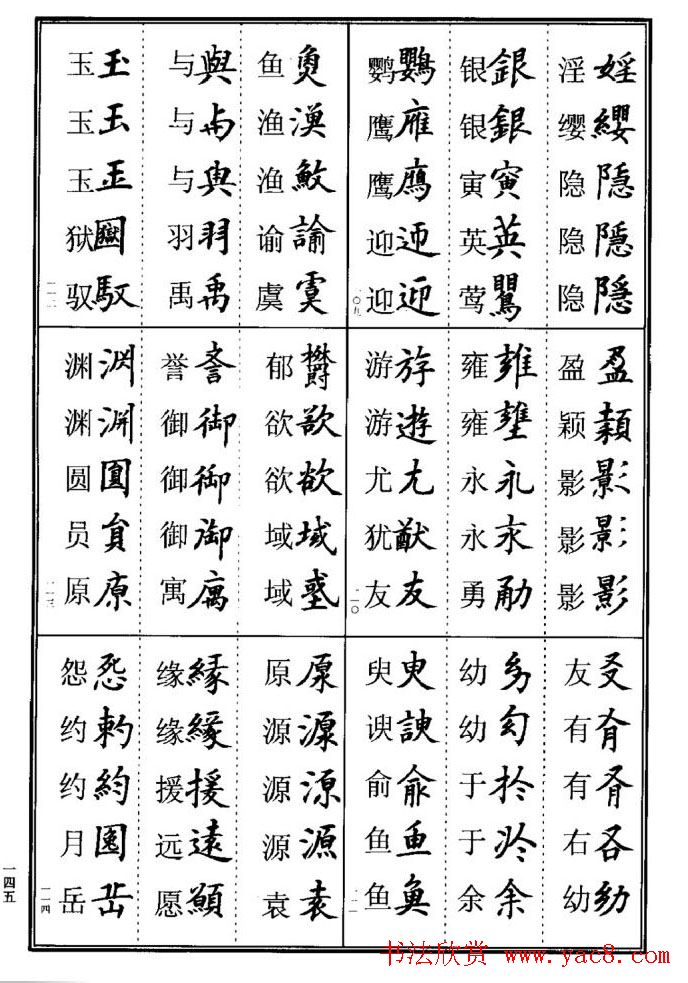 淫婬 缨纓 隐隠 隐隱 隐隱
银銀 银銀 寅寅 英英 莺鸎
鹦鸚 鹰鴈 鹰鷹 迎迊 迎迎
一〇九
盈盈 颖穎 影影 影影 影影
雍雍 雍壅 永永 永永 勇勈
游斿 游遊 尤尤 犹猷 友友
一一〇
友友 有有 有有 右右 幼幼
幼幼 幼幼 于扵 于扵 余余
臾臾 谀諛 俞俞 鱼魚 鱼魚
一一一
鱼魚 渔漁 渔䱷 谕諭 虞虞
与與 与与 与與 羽羽 禹禹
玉玉 玉玉 玉玉 狱圀 驭馭
一一二
郁欝 欲欲 欲欲 域域 域域
誉誉 御御 御御 御御 寓寓
渊渊 渊淵 圆圓 员員 原原
一一三
原原 源源 源源 源源 袁袁
缘縁 缘緣 援援 远遠 愿願
怨怨 约約 约約 月囝 岳岳
一一四
一四五
书法欣赏 www.yac8.com